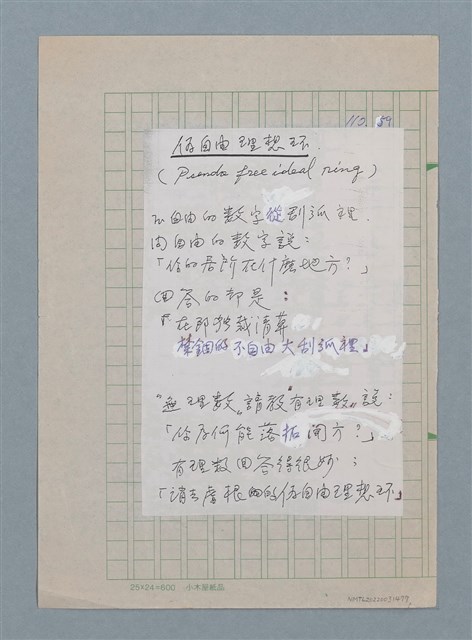 110. 59
伪自由理想环.
(Pseudo free ideal ring)
不自由的数字從刮弧裡.
向自由的数字說:
「你的居所在什麼地方?」
回答的却是:
『在那独裁清算
禁錮的不自由大刮弧裡』
"無理数"請教"有理数"說:
「你为何能落拓闲方?」
有理数回答得很妙:
「請去虐根的伪自由理想环」
25×24=600 小木屋紙品
NMTL20220031477